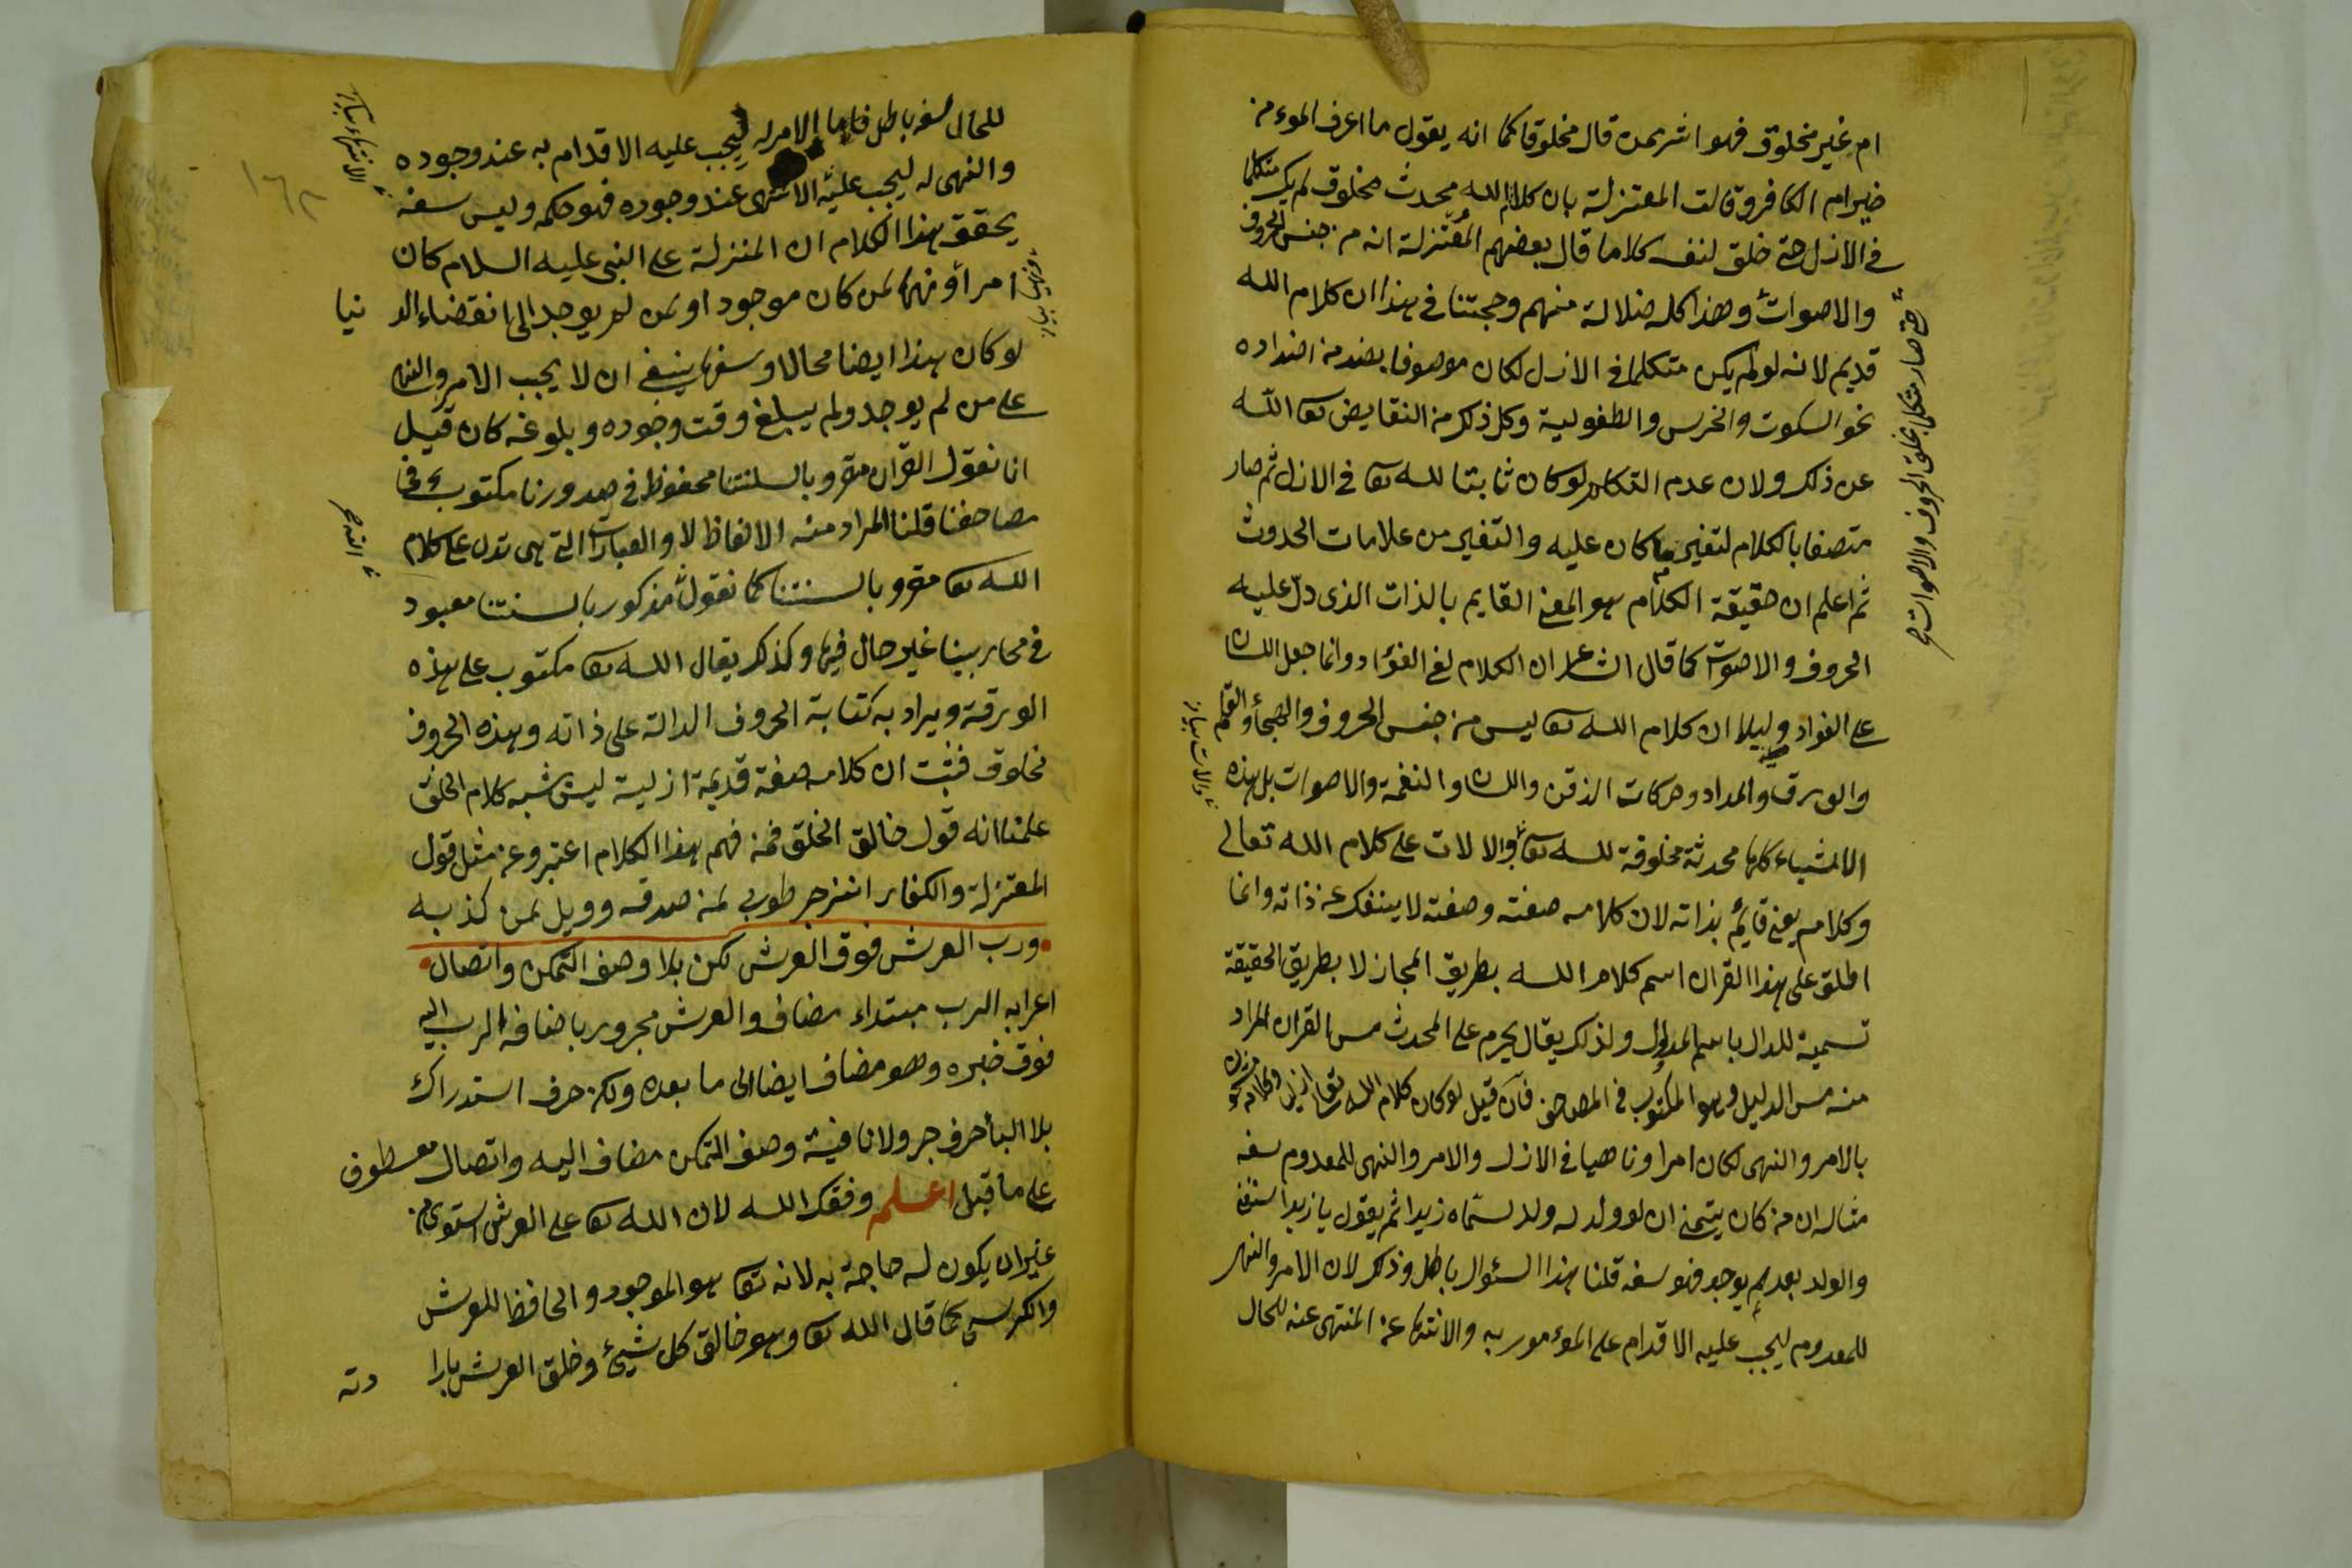 ام غير مخلوق فهو اشر ممن قال مخلوقا كما انه يقول ما اعرف الموءمن
خير ام الكافر وقالت المعتزلة بان كلام الله محدث مخلوق لم يك متكلما
في الازل حتى خلق لنفسه كلاما قال بعضهم المعتزلة انه من جنس الحروف
والاصوات وهذا كله ضلالة منهم وحجتنا في هذا ان كلام الله
قديم لانه لو لم يكن متكلما في الازل لكان موصوفا بضد من اضداده
نحو السكوت والخرس والطفولية وكل ذلك من النقايض تعا الله
عن ذلك ولان عدم التكلم لو كان ثابتا لله تعا في الازل ثم صار
متصفا بالكلام لتغير عما كان عليه والتغير من علامات الحدوث
ثم اعلم ان حقيقة الكلام هو المعنى القايم بالذات الذى دل عليه
الحروف والاصوات كما قال الشاعر ان الكلام لفى الفؤاد وانما جعل اللسان
على الفواد دليلا ان كلام الله تعا ليس من جنس الحروف والهجأ والقلم
والورق والمداد وحركات الذقن واللسان والنغمة والاصوات بل هذه
الاشياء كلها محدثة مخلوقة لله تعا والالات على كلام الله تعالى
وكلامه يعنى قايم بذاته لان كلامه صفته وصفته لا ينفك عن ذاته وانما
اطلق على هذا القران اسم كلام الله بطريق المجاز لا بطريق الحقيقة
تسمية للدال باسم المدلول ولذلك يقال يحرم على المحدث مس القران المراد
منه مس الدليل وهو المكتوب في المصاحف فان قيل لو كان كلام الله تعا ازلى وكلامه
بالامر والنهى لكان امرا وناهيا في الازل والامر والنهى للمعدوم سفه
مثاله ان من كان يتمنى ان لو ولد له ولد لسماه زيدا ثم يقول يا زيد
والولد بعد لم يوجد فهو سفه قلنا هذا السئوال باطل وذلك لان الامر والنهى
للمعدوم ليجب عليه الاقدام على الموءمور به والانتها عن المنتهى عنه للحال
حتى صار متكلما بخلق الحروف والاصوات صح
للحال سفه باطل فاما الامر له ليجب عليه الاقدام به عند وجوده
والنهى له ليجب عليه الانتهى عند وجوده فهو حكمه وليس سفه
يحقق هذا الكلام ان المنزلة على النبى عليه السلام كان
امرا ونهيا لمن كان موجود او لمن لم يوجد الى انقضاء الد نيا
لو كان هذا ايضا محالا وسفها ينبغى ان لا يجب الامر والنهى
على من لم يوجد ولم يبلغ وقت وجوده وبلوغه كان قيل
انا نقول القران مقرو بالسنتنا محفوظ في صدورنا مكتوب في
مصاحفنا قلنا المراد منه الالفاظ لا والعبارات التى هى تدل على كلام
الله تعا مقرو بالسنتنا كما نقول مذكور بالسنتنا معبود
في محاريبنا غير حال فيها وكذلك يقال الله تعا مكتوب على هذه
الورقة ويراد به كتابة الحروف الدالة على ذاته وهذه الحروف
مخلوق فثبت ان كلامه صفة قديمة ازلية ليس شبه كلام الخلق
علمنا انه قول خالق الخلق فمن فهم هذا الكلام اعتبر وعن مثل قول
المعتزلة والكفار انزجر طوبى لمن صدقه وويل لمن كذب به
ورب العرش فوق العرش لكن بلا وصف التمكن واتصال
اعرابه الرب مبتداء مضاف والعرش مجرور باضافة الرب اليه
فوق خبره وهو مضاف ايضا الى ما بعده ولكن حرف استدراك
بلا البأ حرف جر ولا نافية وصف التمكن مضاف اليه واتصال معطوف
على ما قبل اعلم وفقك الله لان الله تعا على العرش استوى من
غير ان يكون له حاجة به لانه تعا هو الموجود والحافظ للعرش
والكرسى كما قال الله تعا وهو خالق كل شيئ وخلق العرش بارا دته
الله صح
١٦٢